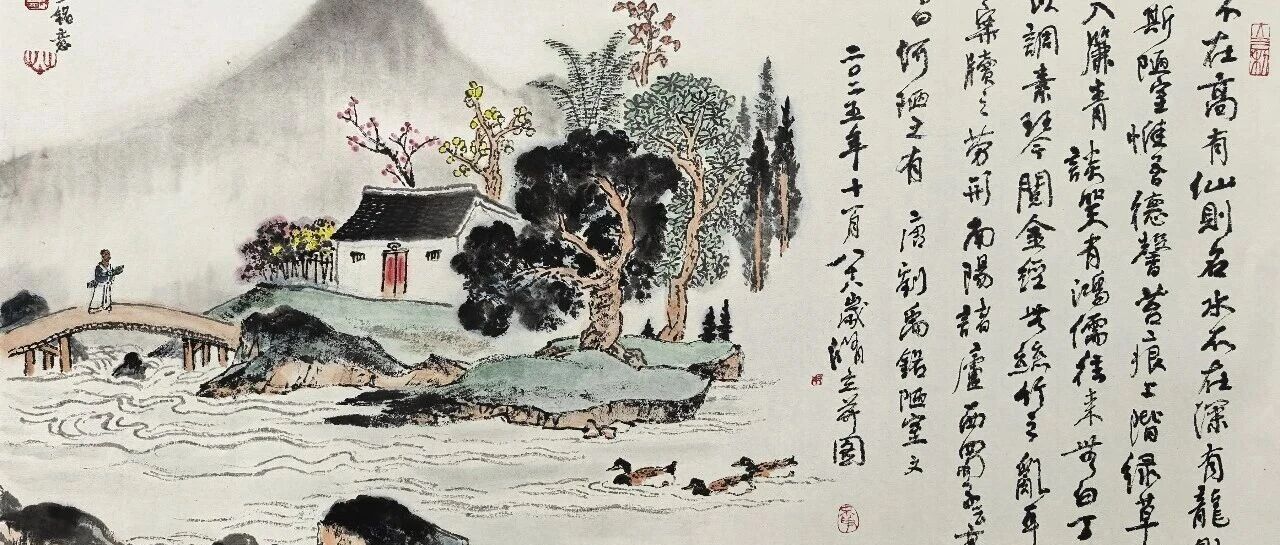 不在高有仙則名水不在深有龍則
斯陋室惟吾德馨苔痕上階绿草
入簾青談笑有鴻儒往来無白丁
以調素琴閱金經無絲竹之亂耳
案牘之劳形南陽諸廬西蜀子云亭
曰何陋之有 唐劉禹錫陋室文
二〇二五年十月
歲
并圖
銘意